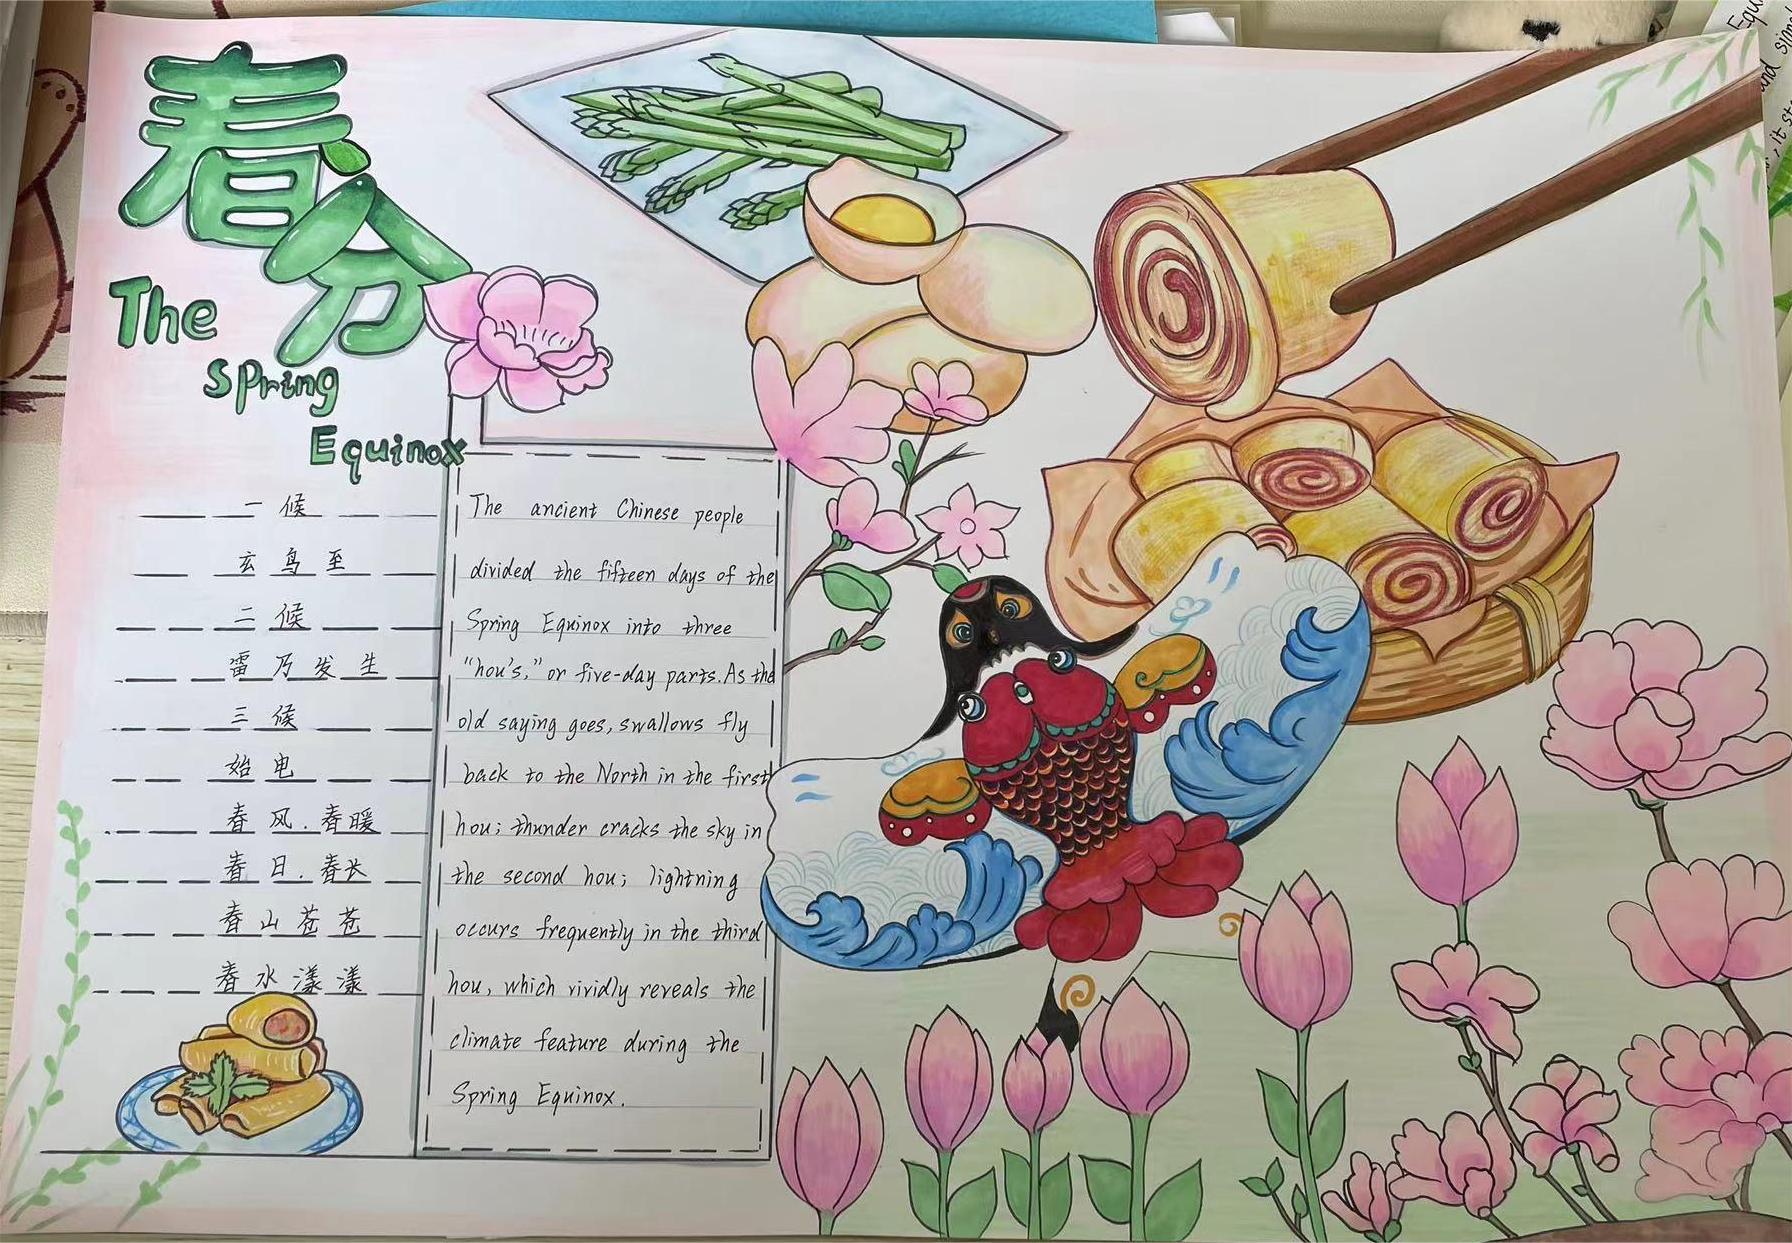 春分
The
spring
Equinox
一候
玄鸟至
二候
雷乃发生
三候
始电
春风.春暖
春日.春长
春山苍苍
春水漾漾
The ancient Chinese people
divided the fifteen days of the
Spring Equinox into three
"hou's," or five-day parts. As the
old saying goes, swallows fly
back to the North in the first
hou; thunder cracks the sky in
the second hou; lightning
occurs frequently in the third
hou, which vividly reveals the
climate feature during the
Spring Equinox.